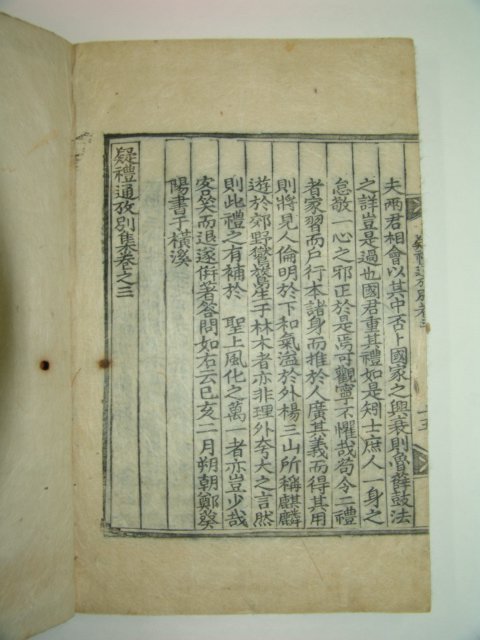 夫兩君相會以其中否卜國家之興衰則魯薛鼓法
之詳豈是過也國君重其禮如是矧士庶人一身之
怠敬 心之邪正於是焉可觀寧不懼哉苟令二禮
者家習而戶行本諸身而推於人廣其義而得其用
則將見人倫明於下和氣溢於外楊三山所稱麒麟
遊於郊野鸑鷟產于林木者亦非理外夸大之言然
則此禮之有補於 聖上風化之萬一者亦豈少哉
客笑而退遂倂著答問如右云己亥二月朔朝鄭葵
陽書于橫溪
疑禮通攷別集卷之三